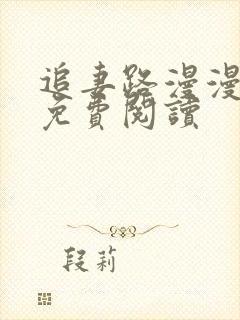 追妻路漫漫
免費閱讀
段莉